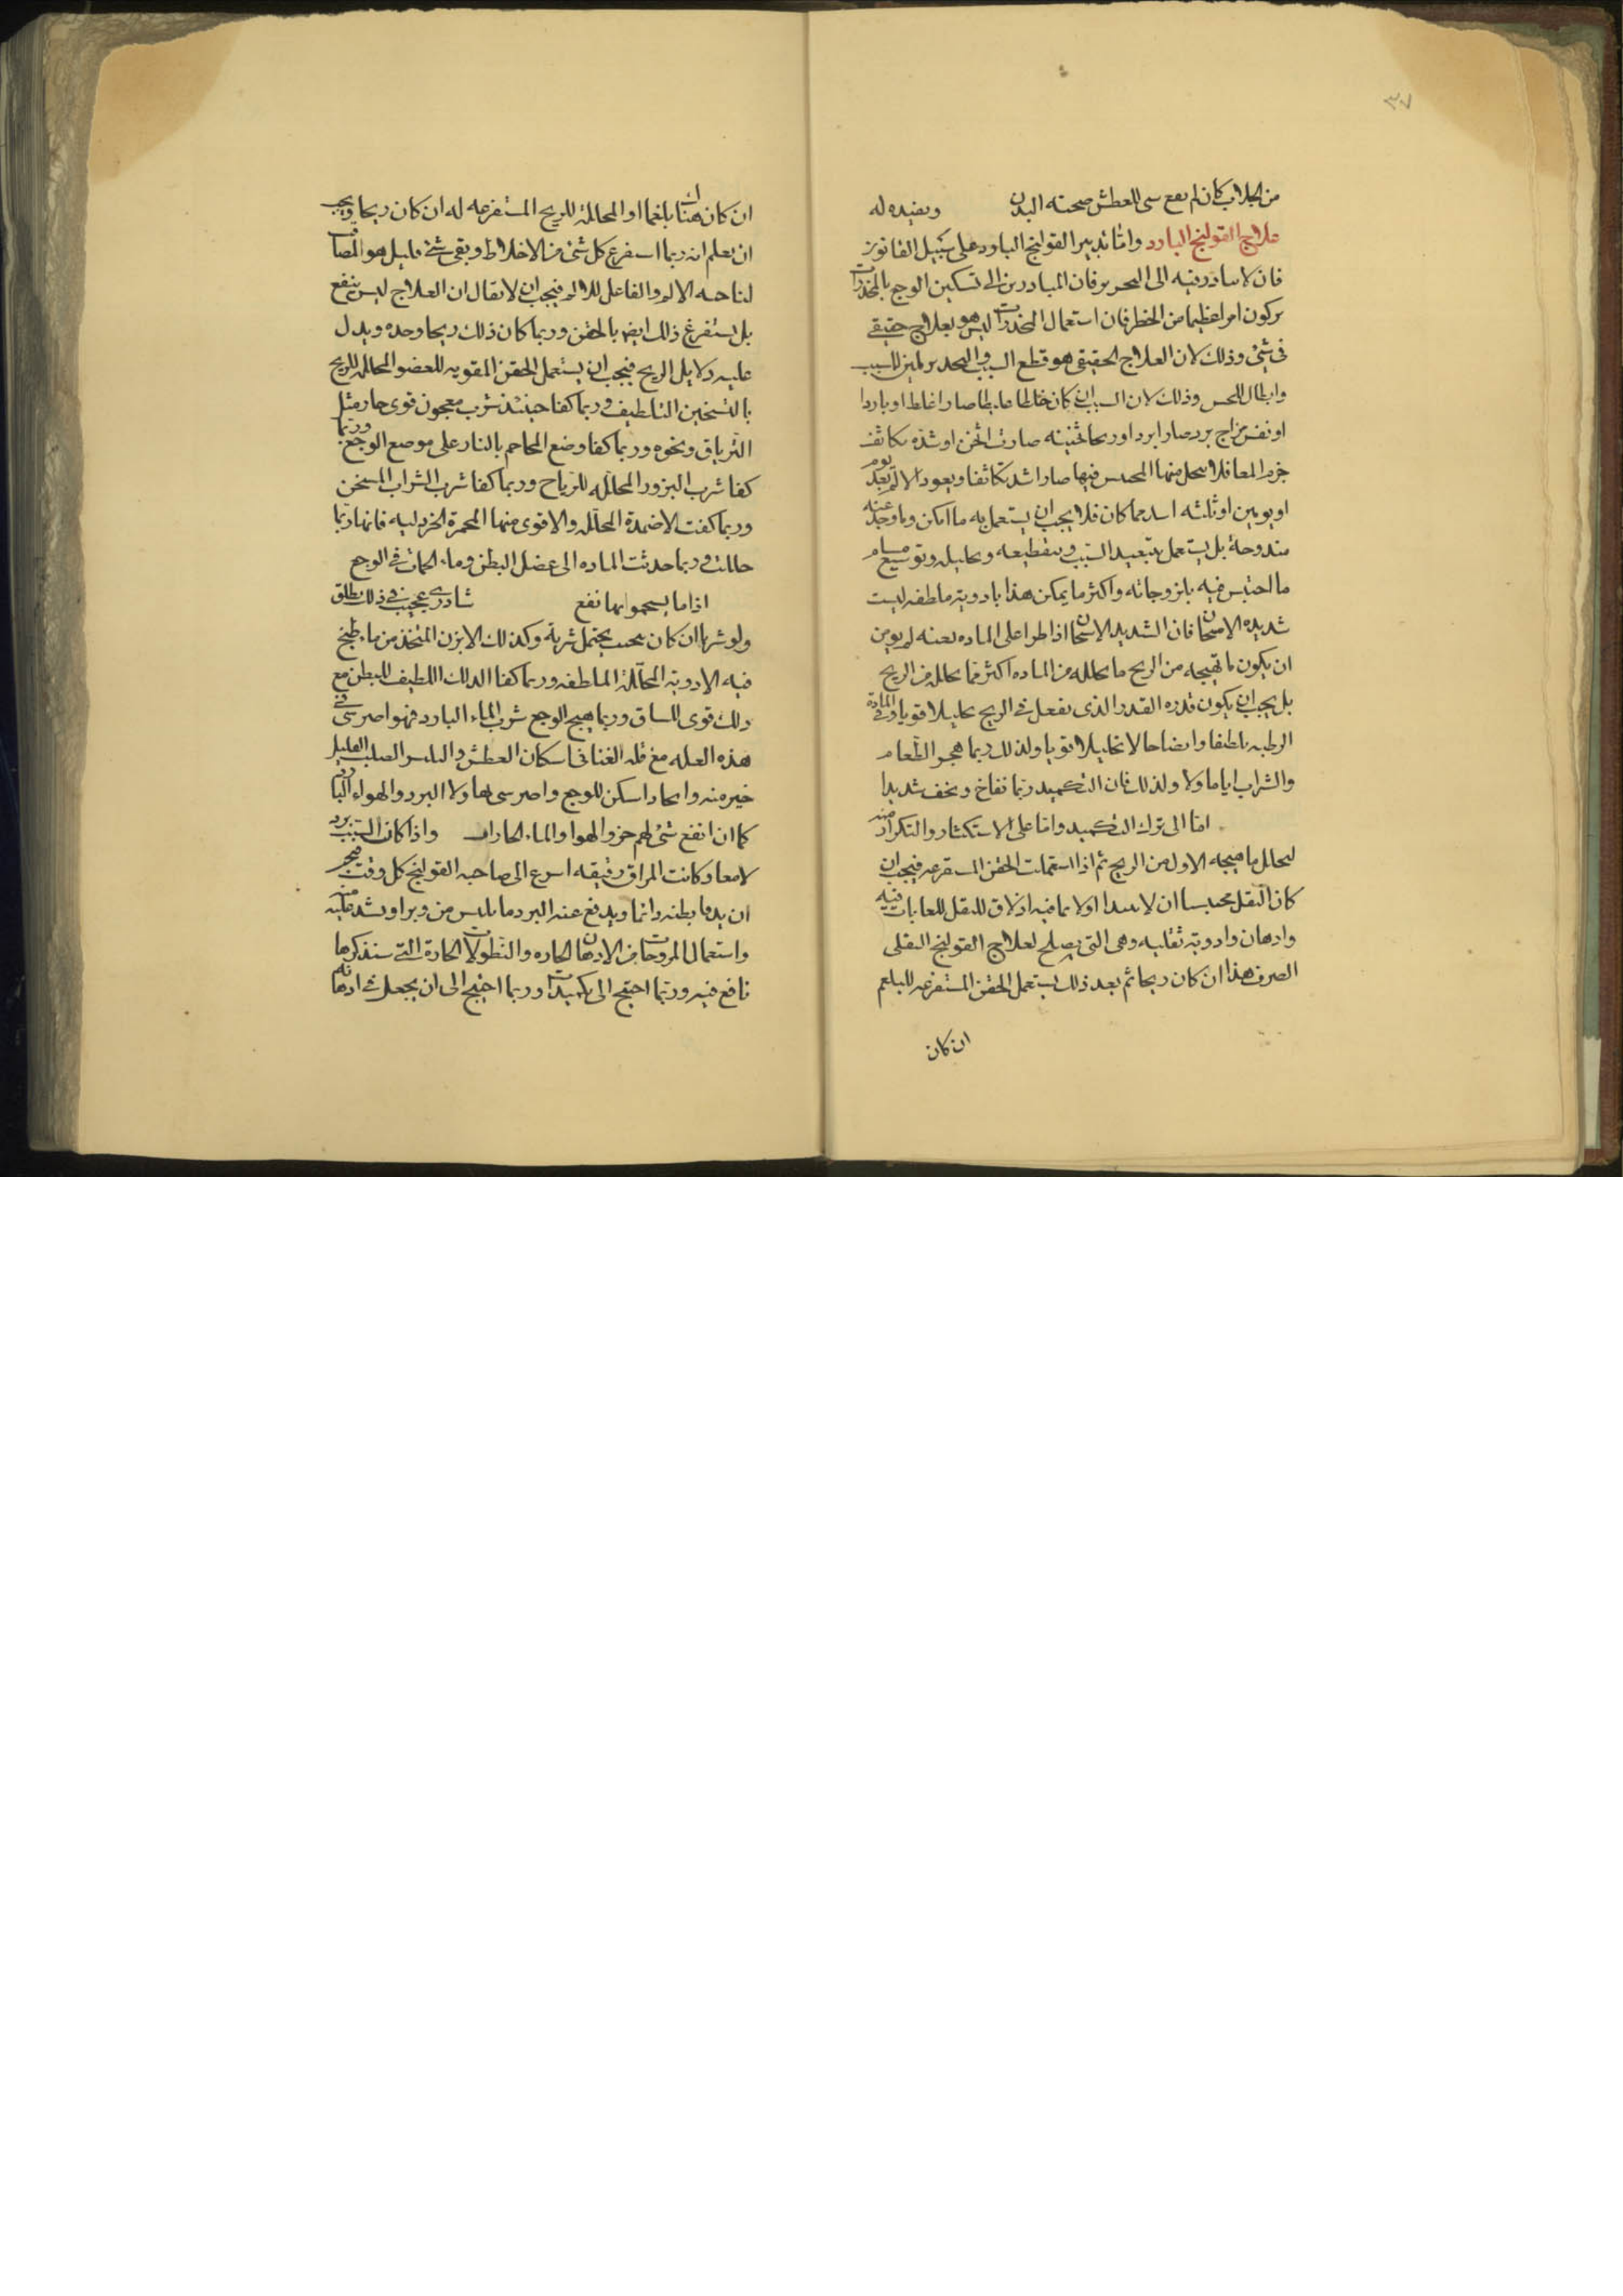 ٣٧
من الجلاب كان لم يقع سى للعطش صحته البدن ويفيده له
علاج القولنج البارد واما تدبير القولنج البارد على سبيل القانون
فان لا سادر فيه الى التخدير فان المبادرين الى تسكين الوجع بالمخدرات
يركبون امرا عظيما من الخطر فان استعمال المخدرات ليس هو بعلاج حقيقى
فى شئ وذلك لان العلاج الحقيقى هو قطع السبب والتخدير تمكين للسبب
وابطال للحس وذلك لان السبب ان كان خلطا غليظا صار اغلظ او باردا
او نفس مزاج برد صار ابرد او ريحا ثخينه صارت اثخن او شده تكاثف
جرم المعا فلا ينحل منها المحتبس فيها صار اشد تكاثفا ويعود الالم بعد يوم
او يومين او ثلثه اشد مما كان فلا يجب ان يستعمل به ما امكن وما وجد عنه
مندوحة بل يستعمل بتبعيد السبب وبتقطيعه وتحليله وتوسيع مسام
ما احتبس فيه بلزوجاته واكثر ما يمكن هذا بادوية ملطفه ليست
شديده الاسخان فان الشديد الاسخان اذا طرا على الماده بعنه لم يومن
ان يكون ما تهيجه من الريح ما يحلله من الماده اكثر مما يحلله من الريح
بل يجب ان يكون قدره القدر الذى يفعل فى الريح تحليلا قويا وفى المادة
الرطبه تلطيفا وانضاجا لا تحليلا قويا ولذلك ربما هجر الطعام
والشراب اياما ولا ولذلك فان التكميد ربما نفاخ وتخف شديدا
اما الى ترك التكميد واما على الاستكثار والتكرار منه
ليحلل ما هيجه الاول من الريح ثم اذا استعملت الحقن المستفرغه فيجب ان
كان الثقل محتبسا ان لا يبدا اولا بما فيه ازلاق للثقل للعابات فيه
وادهان وادوية ثفليه وهى التى يصلح لعلاج القولنج الثفلى
الصرف هذا ان كان ريحا ثم بعد ذلك يستعمل الحقن المستفرغه للبلغم
ان كان
ان كان هناك بلغما او المحللة للريح المستفرغه له ان كان ريحا ويجب
ان يعلم انه ربما استفرغ كل شئ من الاخلاط وبقى شئ قليل هو المصاقب
لناحيه الالم والفاعل للالم فيجب ان لا يقال ان العلاج ليس ينفع
بل يستفرغ ذلك ايضا بالحقن وربما كان ذلك ريحا وحده ويدل
عليه دلايل الريح فيجب ان يستعمل الحقن المقويه للعضو المحلله للريح
بالتسخين اللطيف وربما كفا حينئذ شرب معجون قوى حار مثل
الترياق ونحوه وربما كفا وضع المحاجم بالنار على موضع الوجع وربما
كفا شرب البزور المحلله للرياح وربما كفا شرب الشراب المسخن
وربما كفت الاضمدة المحلله والاقوى منها المحمرة الخردليه فانها ربما
حللت وربما جذبت الماده الى عضل البطن وماء الحمات فى الوجع
اذا ما يسحموا بها نفع شادرى عجيب فى ذلك يطلق
ولو شربها ان كان بحيث يحتمل شربه وكذلك الابزن المتخذ من ماء طبخ
فيه الادوية المحللة الملطفه وربما كفا الدلك اللطيف للبطن مع
دلك قوى للساق وربما هيج الوجع شرب الماء البارد فهو اضر شئ فى
هذه العله مع قله الغنا فى اسكان العطش والنبيذ الصلب القليل
خير منه والحار اسكن للوجع واضر شى بها ولا البرد والهواء البارد
كما ان انفع شئ لهم حر والهوا والماء الحاران واذا كان السبب برد
لامعا وكانت المراق رقيقه اسرع الى صاحبه القولنج كل وقت فيجب
ان يدفا بطنه دائما ويدفع عنه البرد ما يلبس من وبر او يشد عليه منه
واستعمال المروحات من الادهان الحاره والنطولات الحارة التى سنذكرها
نافع فيه وربما احتيج الى تكميدات وربما احتيج الى ان يجعل فى ادهانه